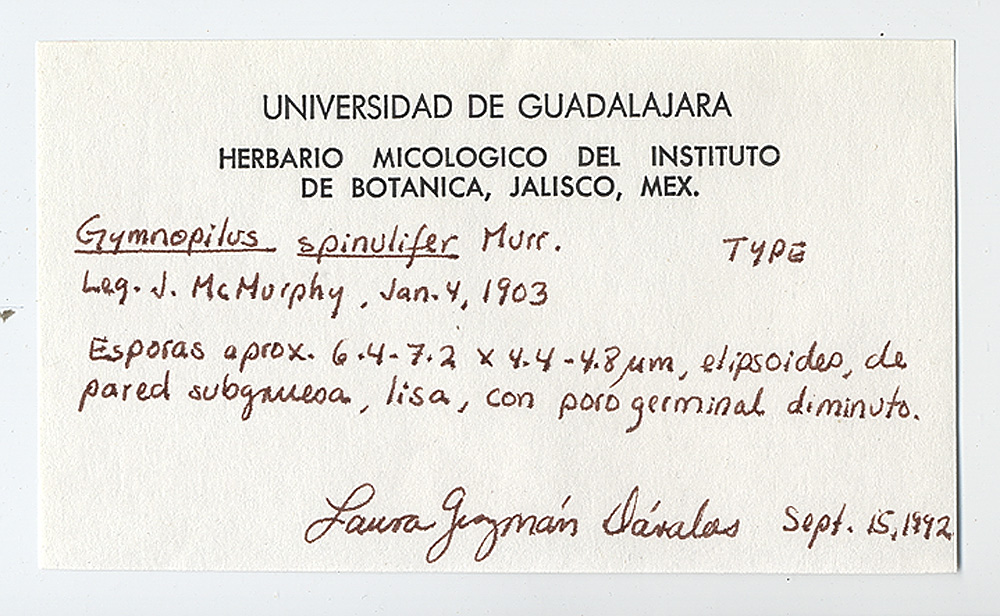 UNIVERSIDAD DE GUADALAJARA
HERBARIO MICOLOGICO DEL INSTITUTO
DE BOTANICA, JALISCO, MEX.
Gymnopilus spinulifer Murr. TYPE
Leg. J. McMurphy, Jan. 4, 1903
Esporas aprox. 6.4-7.2 x 4.4-4.8 µm, elipsoides, de
pared subgruesa, lisa, con poro germinal diminuto.
Laura Guzmán Dávalos Sept. 15, 1992